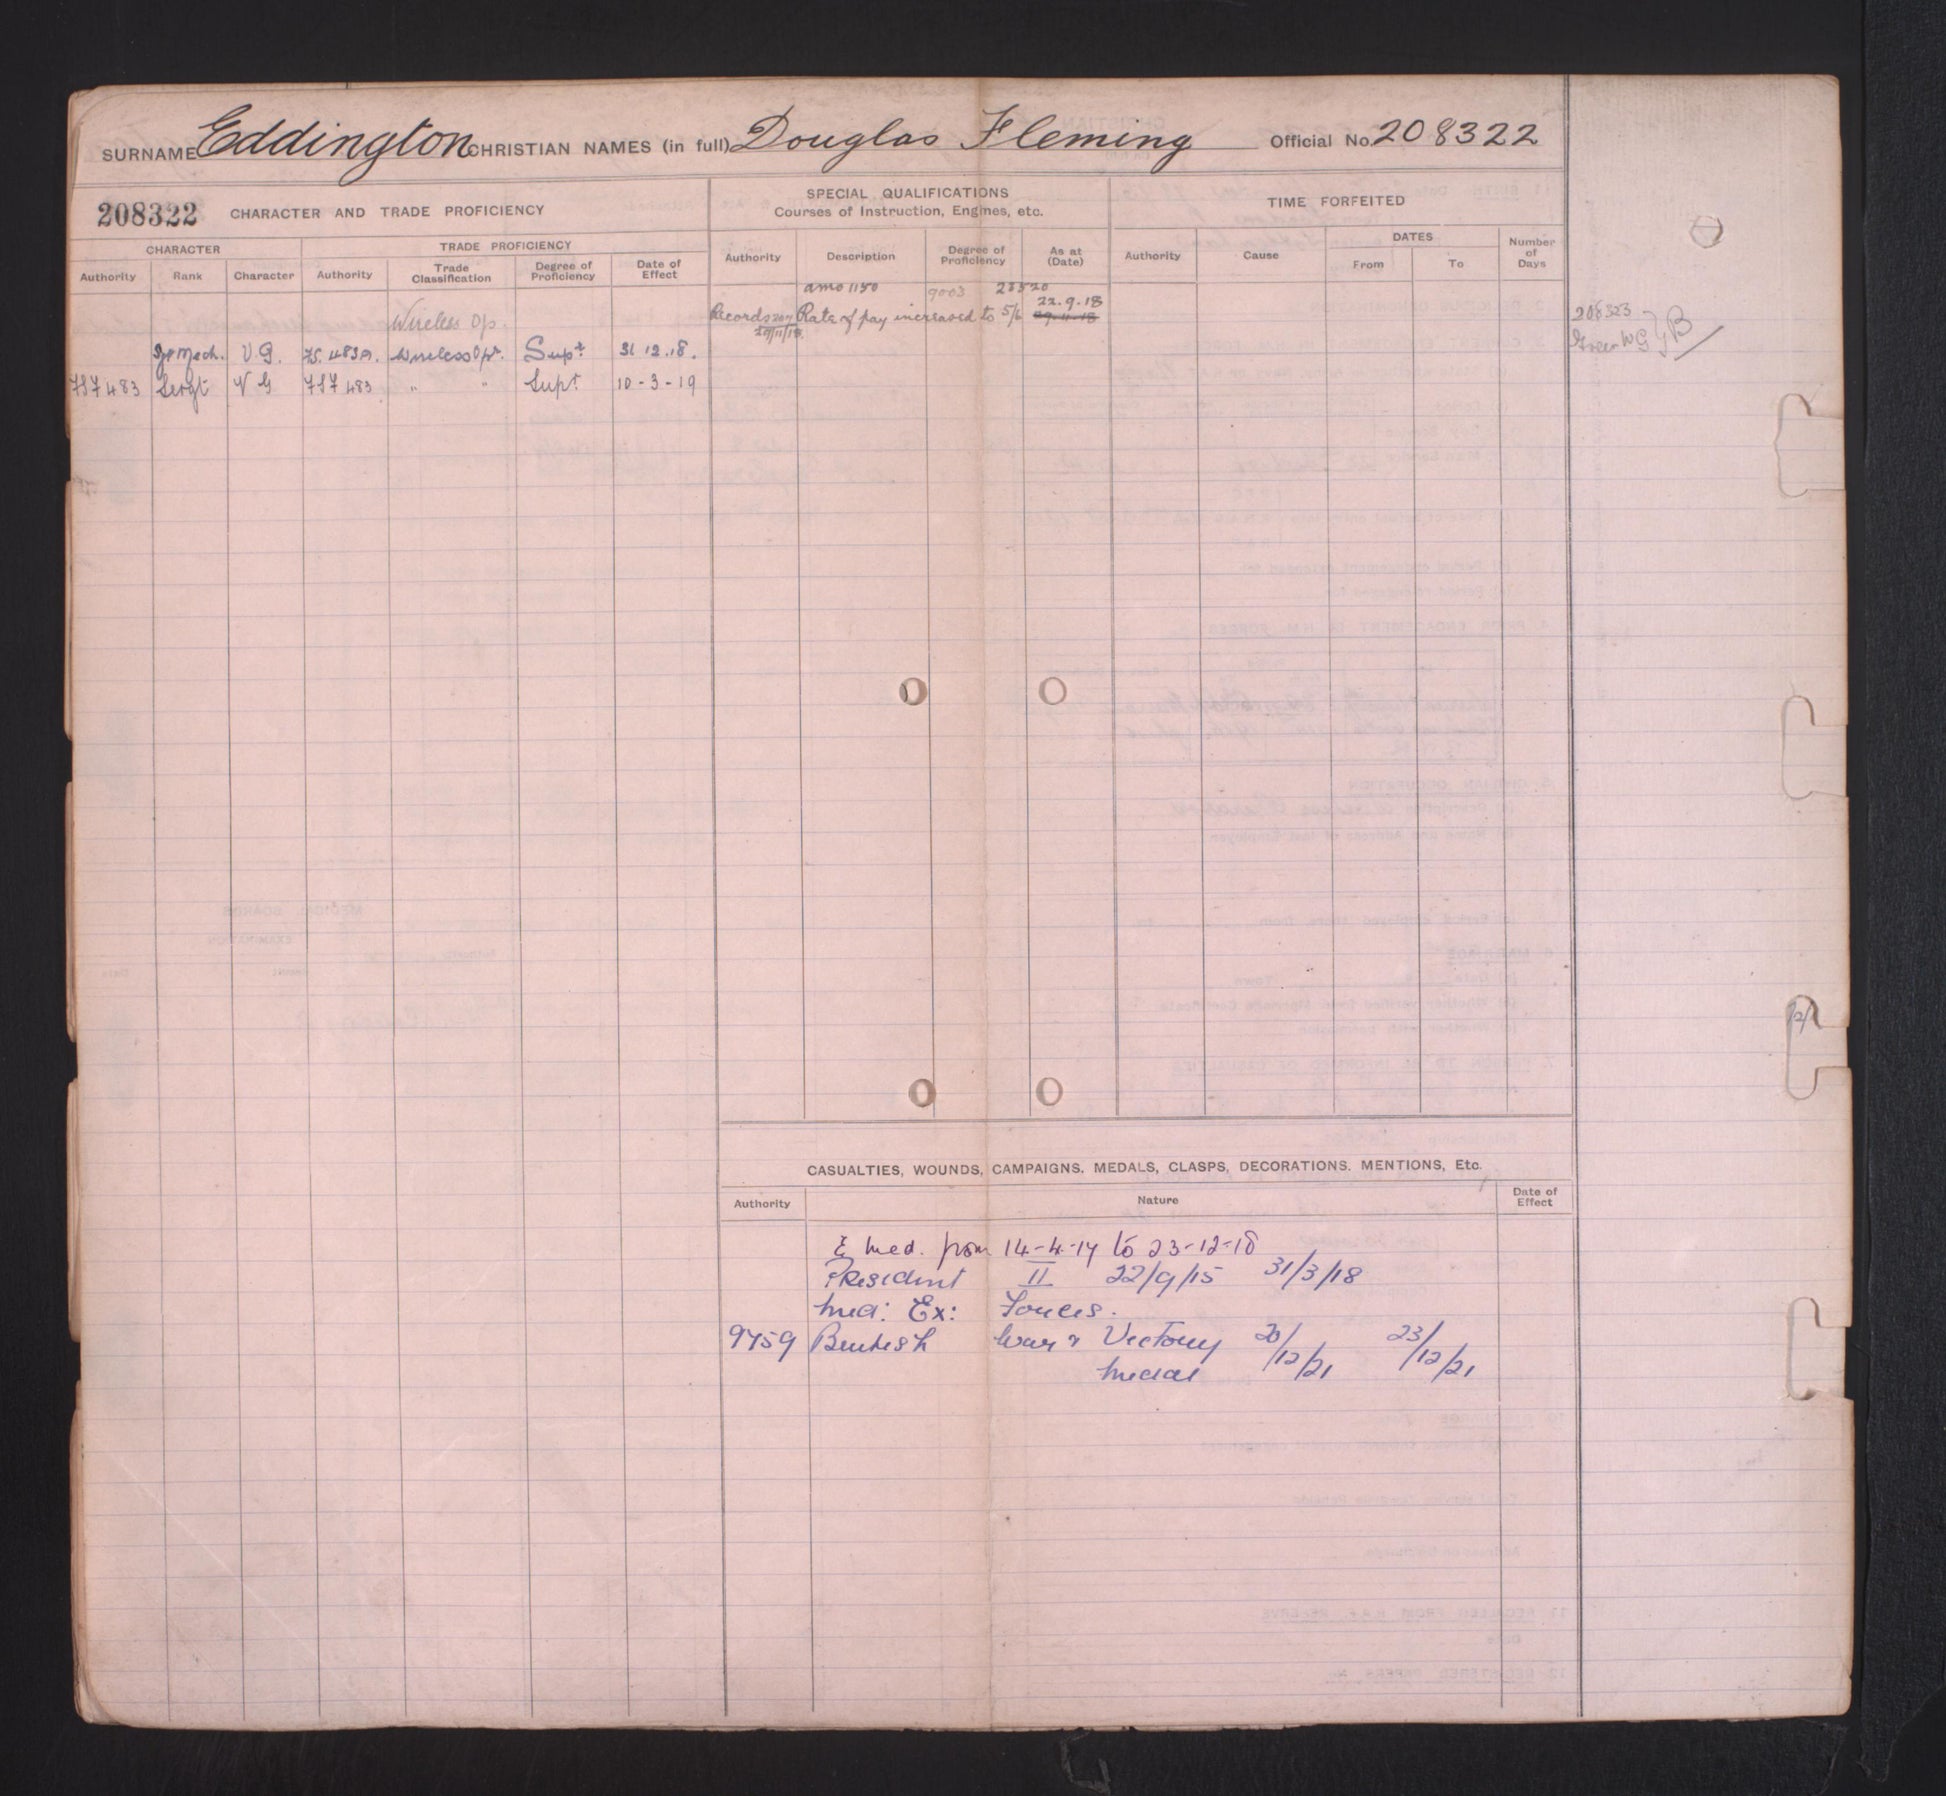 SURNAME Eddington CHRISTIAN NAMES (in full) Douglas Fleming Official No. 208322
208322 CHARACTER AND TRADE PROFICIENCY
CHARACTER TRADE PROFICIENCY
Authority Rank Character Authority Trade Classification Degree of Proficiency Date of Effect
Wireless Op.
Sgt Mech. V.G. 75.483A. Wireless Opr. Supt 31.12.18.
757483 Sergt V G 757483 " " Supt 10-3-19
SPECIAL QUALIFICATIONS
Courses of Instruction, Engines, etc.
Authority Description Degree of Proficiency As at (Date)
amo 1150 9003 28520
22.9.18
Records 207 Rate of pay increased to 5/6
29/11/18
TIME FORFEITED
Authority Cause DATES From To Number of Days
208323
Green W G } B
CASUALTIES, WOUNDS, CAMPAIGNS. MEDALS, CLASPS, DECORATIONS. MENTIONS, Etc.
Authority Nature Date of Effect
E Med. from 14-4-17 to 23-12-18
President II 22/9/15 31/3/18
Med: Ex: Forces.
9759 British War & Victory 20/12/21 23/12/21
Medal